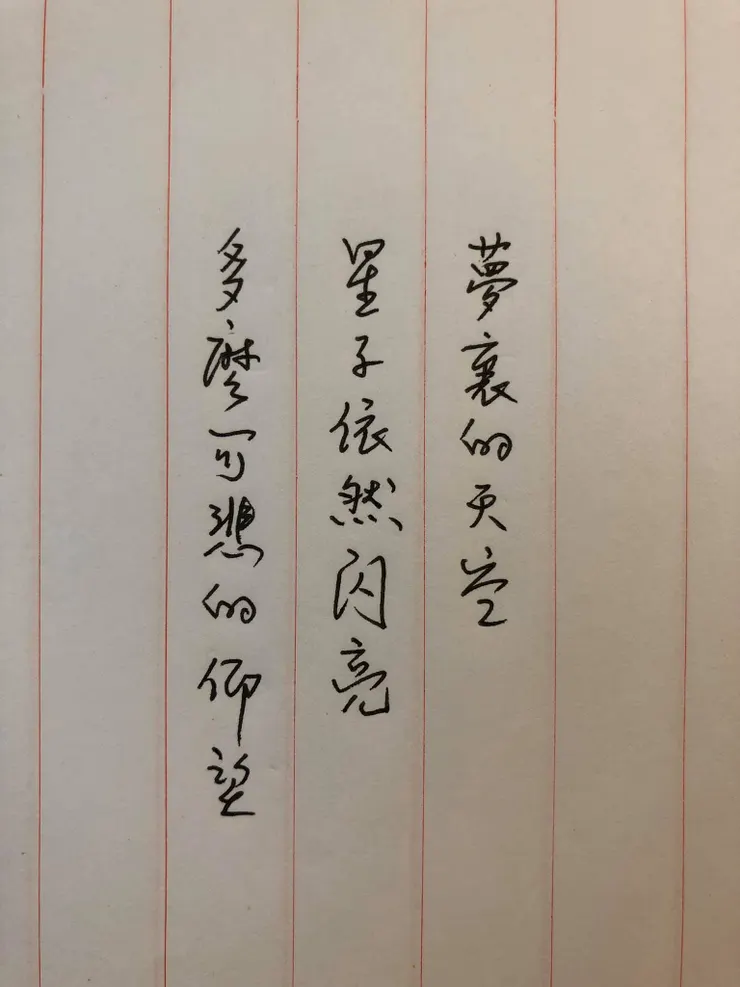 夢裏的天空
星子依然闪亮
多麼可悲的仰望